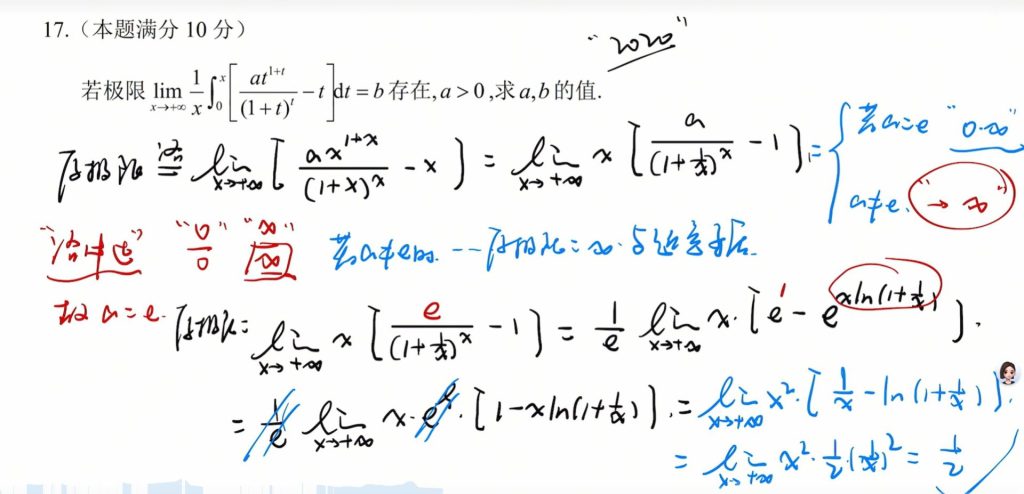 17.（本题满分 10 分）
"2020"
若极限 lim_{x→+∞} \frac{1}{x} ∫_0^x [ \frac{at^{1+t}}{(1+t)^t} − t ] dt = b 存在, a > 0 ,求 a,b 的值.
原极限 \overset{洛}{=} lim_{x→+∞} [ \frac{ax^{1+x}}{(1+x)^x} − x ] = lim_{x→+∞} x [ \frac{a}{(1+\frac{1}{x})^x} − 1 ] = { 若a=e "0·∞"
a≠e. "→ ∞"
"洛必达" "\frac{0}{0}" "\frac{∞}{∞}" 若a≠e时. -- 原极限=∞. 与题意矛盾.
故 a=e. 原极限= lim_{x→+∞} x [ \frac{e}{(1+\frac{1}{x})^x} − 1 ] = \frac{1}{e} lim_{x→+∞} x· [ e^1 − e^{xln(1+\frac{1}{x})} ].
= \frac{1}{e} lim_{x→+∞} x· e^1· [ 1−xln(1+\frac{1}{x}) ]. = lim_{x→+∞} x^2· [ \frac{1}{x} − ln(1+\frac{1}{x}) ].
= lim_{x→+∞} x^2· \frac{1}{2}·(\frac{1}{x})^2 = \frac{1}{2}